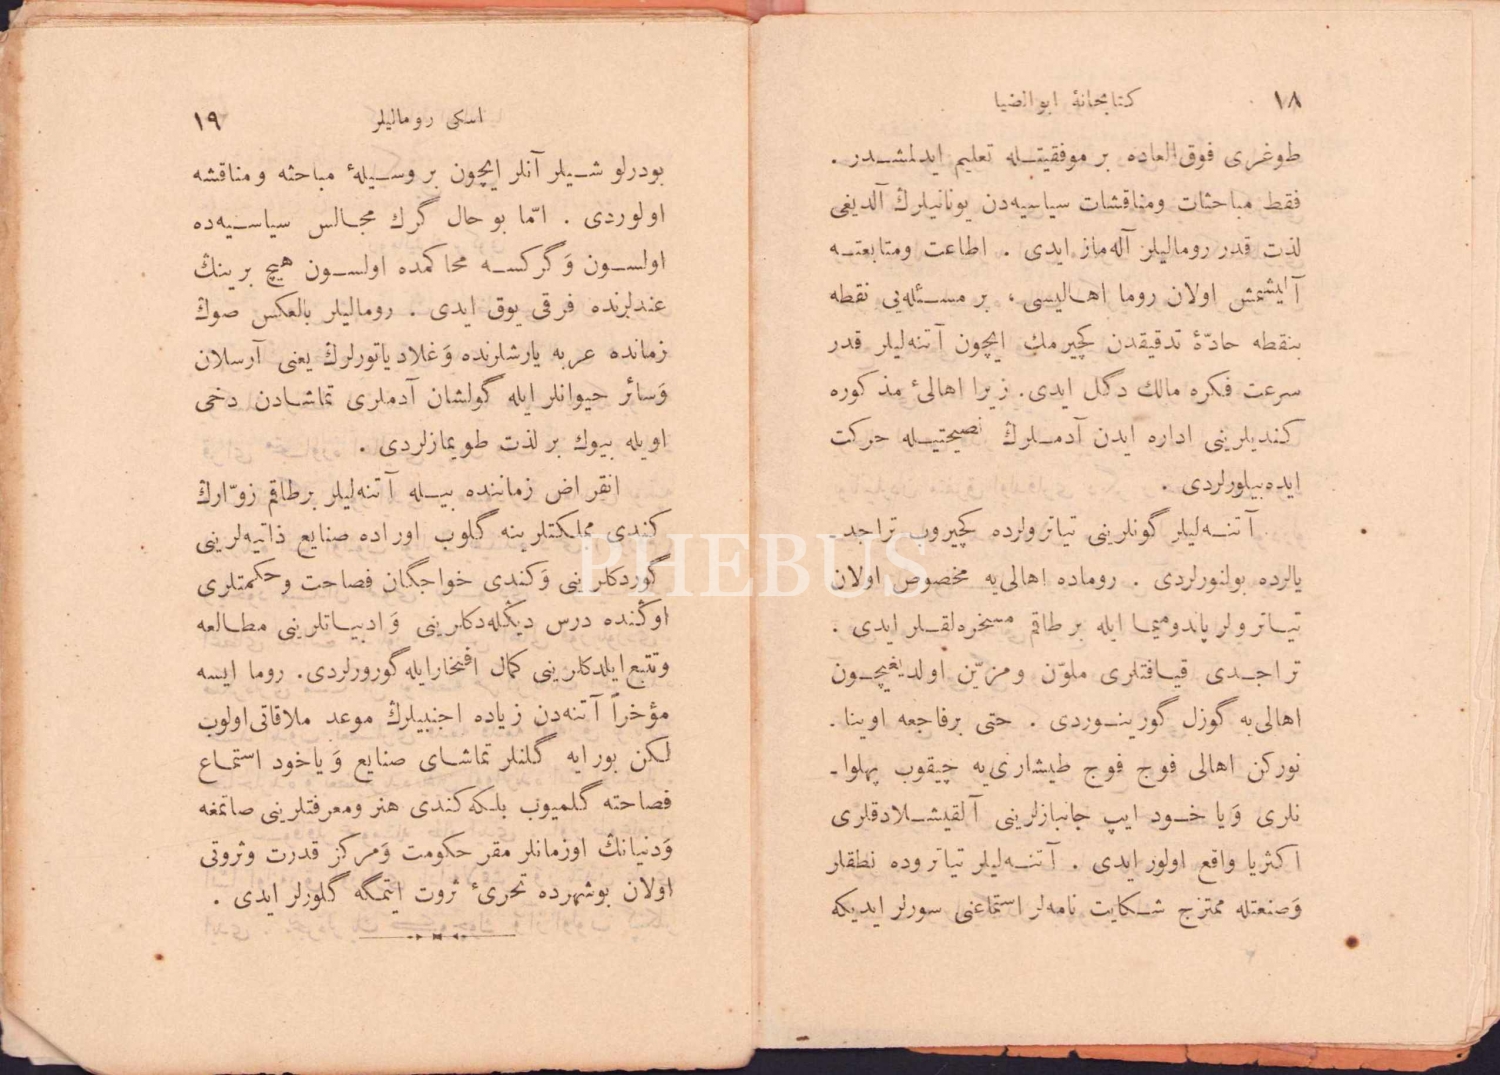 ١٨
كتابخانهٔ ابوالضيا
طوغرى فوق العاده بر موفقيتله تعليم ايدلمشدر .
فقط مباحثات ومناقشات سياسيه‌دن يونانيلرك آلديغى
لذت قدر روماليلر آله‌ماز ايدى . اطاعت ومتابعته
آليشمش اولان روما اهاليسى ، بر مسئله‌يى نقطه
بنقطه حادّهٔ تدقيقدن كچيرمك ايچون آتنه‌ليلر قدر
سرعت فكره مالك دگل ايدى. زيرا اهالئ مذكوره
كنديلرينى اداره ايدن آدملرڭ نصيحتيله حركت
ايده‌بيلورلردى .
آتنه‌ليلر گونلرينى تياترولرده كچيروب تراجد-
يالرده بولنورلردى . روماده اهالى‌يه مخصوص اولان
تياترولر پاندوميما ايله بر طاقم مسخره‌لقلر ايدى .
تراجدى قيافتلرى ملوّن ومزيّن اولديغيچون
اهالى‌يه گوزل گورينوردى . حتى برفاجعه اوينا .
نوركن اهالى فوج فوج طيشارى‌يه چيقوب پهلوا-
نلرى وَيا خود ايپ جانبازلرينى آلقيشلادقلرى
اكثريا واقع اولور ايدى . آتنه‌ليلر تياتروده نطقلر
وَصنعتله ممتزج شكايت نامه‌لر استماعنى سورلر ايديكه
اسكى روماليلر
١٩
بودرلو شيلر آنلر ايچون بر وسيلهٔ مباحثه ومناقشه
اولوردى . امّا بو حال گرك مجالس سياسيه‌ده
اولسون وَگركسه محاكمده اولسون هيچ برينڭ
عندلرنده فرقى يوق ايدى . روماليلر بالعكس صوڭ
زمانده عربه يارشلرنده وَغلادياتورلرڭ يعنى آرسلان
وَسائر حيوانلر ايله گولشان آدملرى تماشادن دخى
اويله بيوك بر لذت طويمازلردى .
انقراض زماننده بيله آتنه‌ليلر برطاقم زوّارڭ
كندى مملكتلرينه گلوب اوراده صنايع ذاتيه‌لرينى
گوردكلرينى وَكندى خواجگان فصاحت وحكمتلرى
اوڭنده درس ديڭله‌دكلرينى وَادبياتلرينى مطالعه
وتتبع ايلدكلرينى كمال افتخارايله گورورلردى. روما ايسه
مؤخراً آتنه‌دن زياده اجنبيلرڭ موعد ملاقاتى اولوب
لكن بورايه گلنلر تماشاى صنايع وَياخود استماع
فصاحته گلميوب بلكه كندى هنر ومعرفتلرينى صاتمغه
وَدنيانڭ اوزمانلر مقر حكومت وَمركز قدرت وثروتى
اولان بوشهرده تحرئ ثروت ايتمگه گلورلر ايدى .
PHEBUS